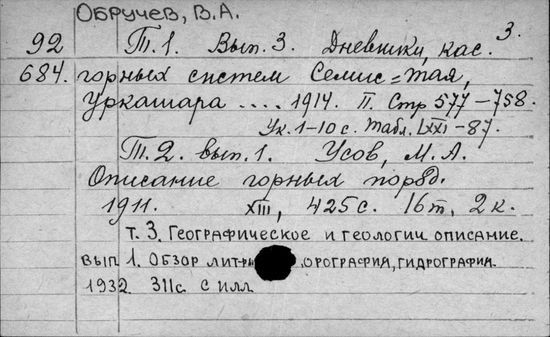 Обручев, В.А.
3.
92 Т.1. Вып.3. Дневники, кас.
684. горных систем Семис=тая,
Уркашара .... 1914. II. Стр 577-758.
Ук. 1-10 с. Табл. LXXI-87.
Т.2. вып.1. Усов, М.А.
Описание горных пород.
1911. XIII, 425с. 16т, 2к.
т. 3. Географическое и геологии описание.
вып 1. Обзор орография, гидрография
1932 311с с илл